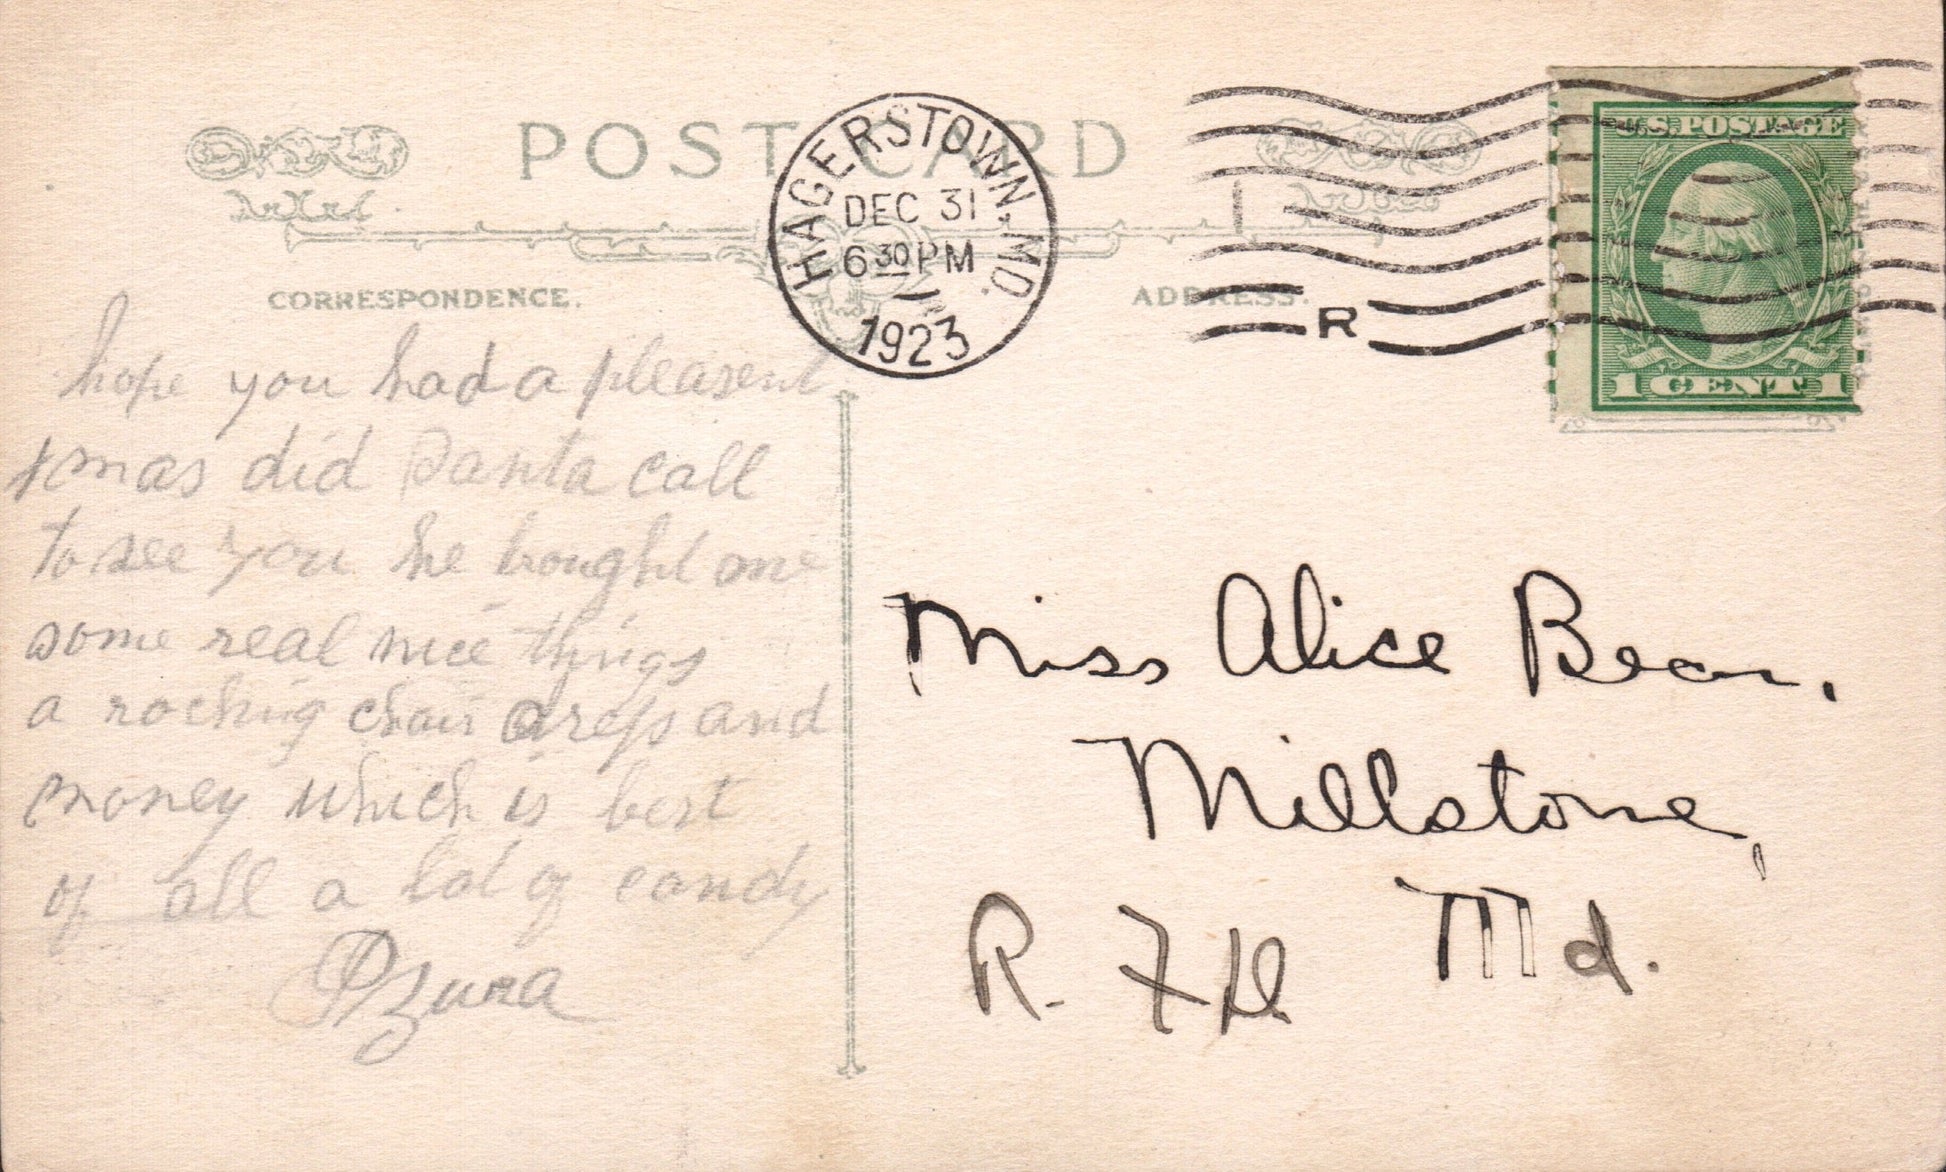 POST CARD
HAGERSTOWN, MD.
DEC 31
6 30 PM
1923
R
U.S. POSTAGE
1 CENT 1
CORRESPONDENCE.
ADDRESS.
hope you had a pleasent
xmas did Santa call
to see you he bought me
some real nice things
a rocking chair dress and
money which is best
of all a lot of candy
Miss Alice Bear,
Millstone,
Md.
R. F D.